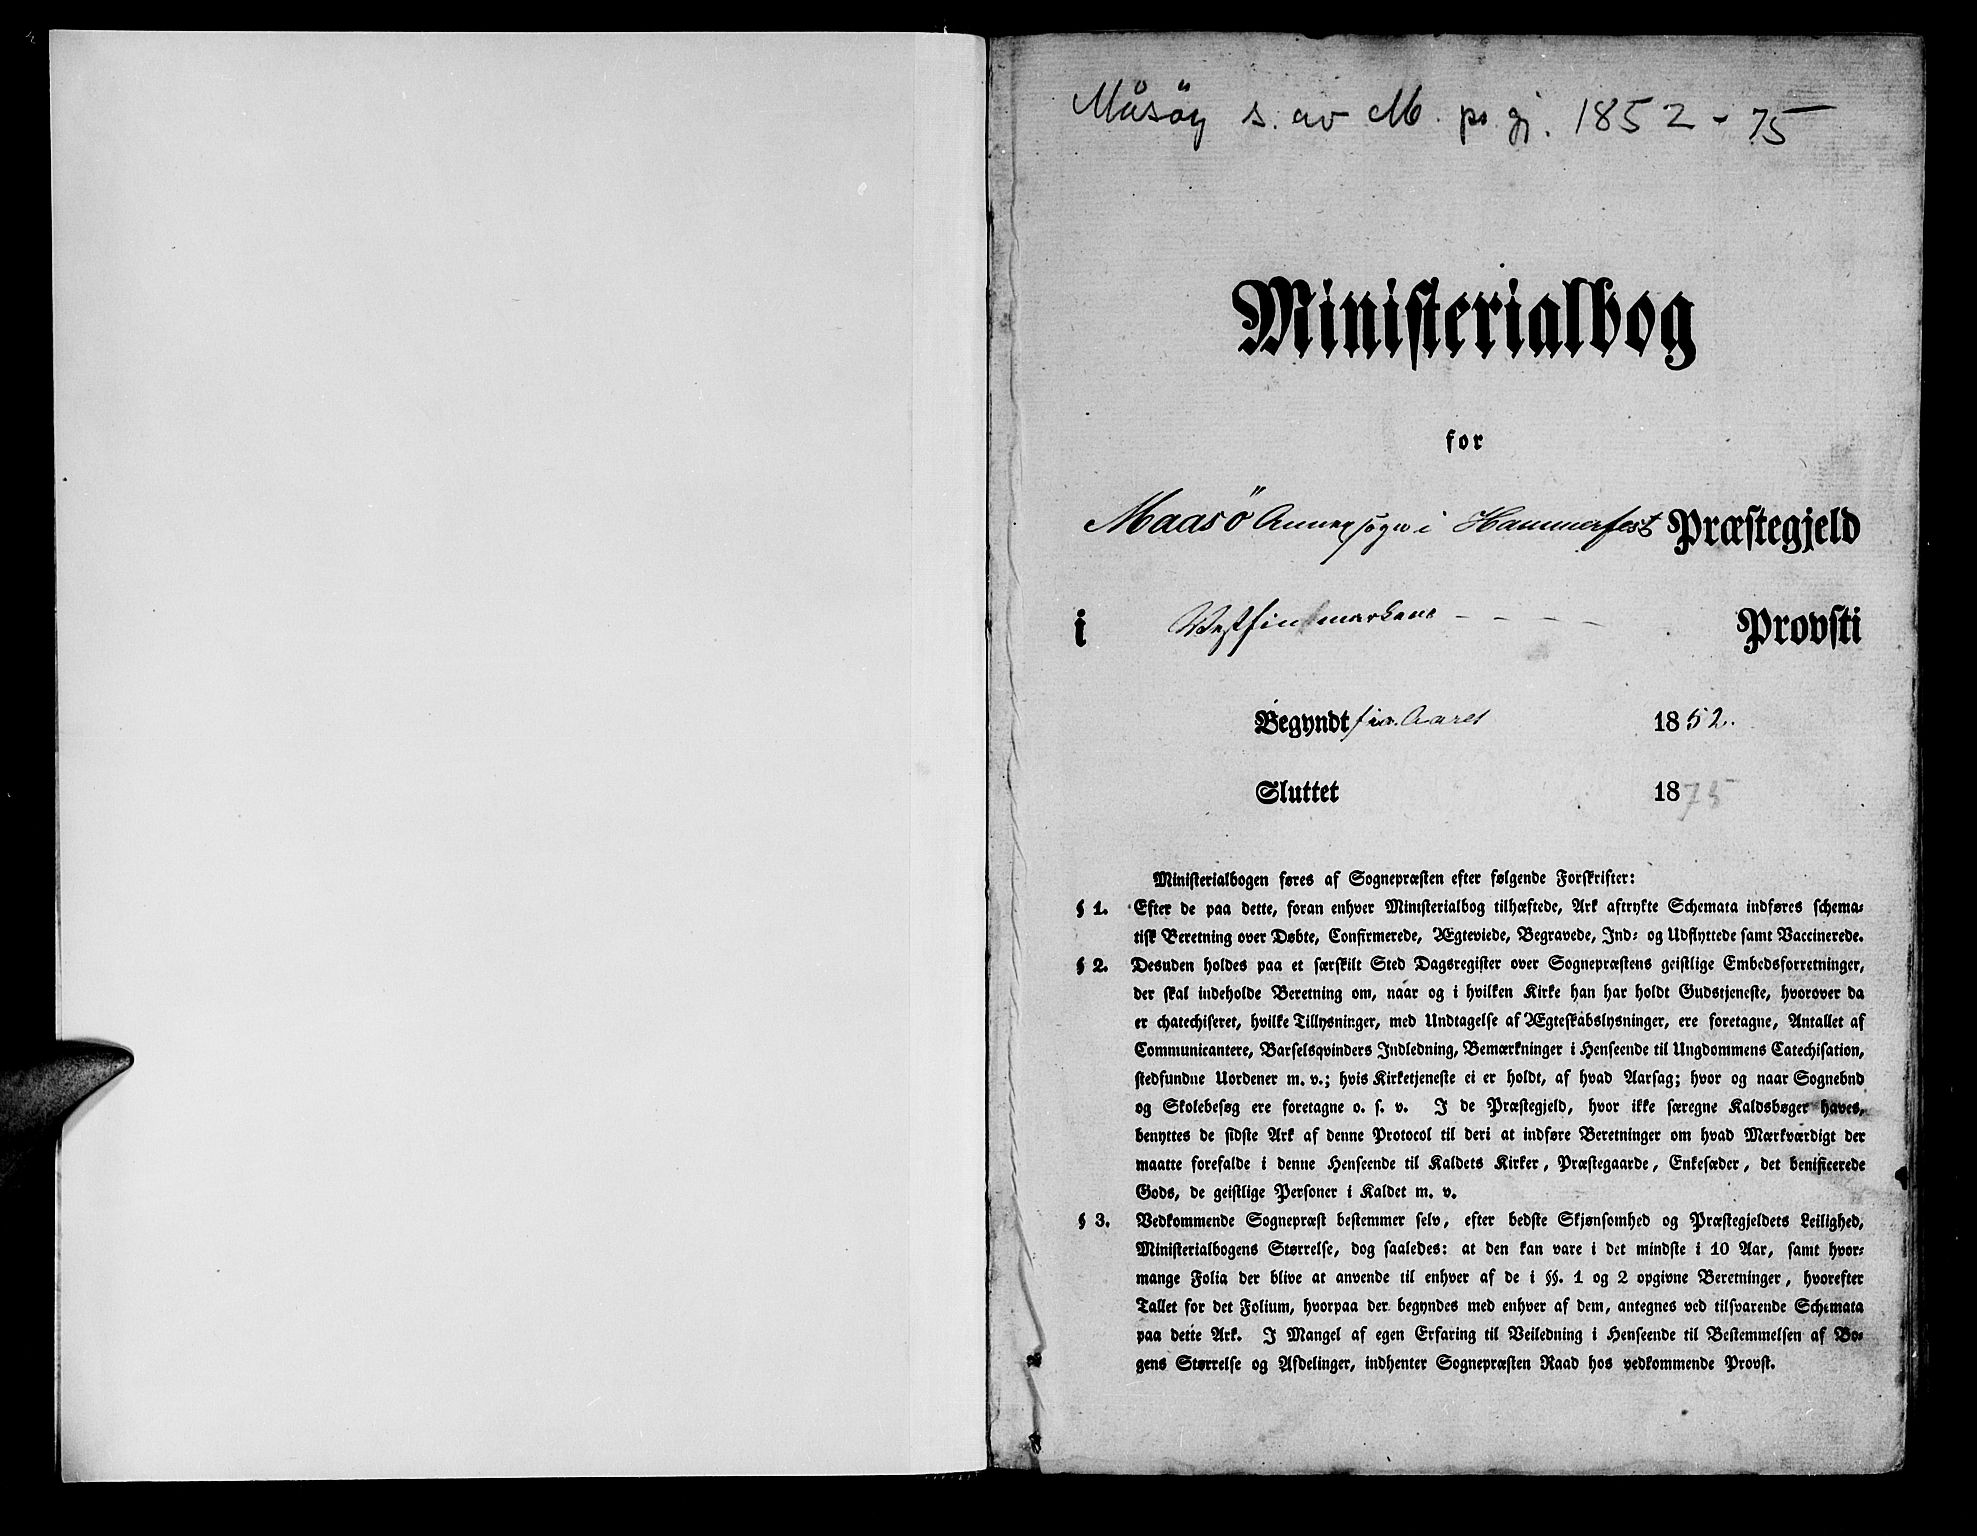 Måsöy s. av M. ps gj. 1852 - 75
Ministerialbog
for
Maasö Annexsogn i Hammerfest Præstegjeld
i Vestfinmarkens - - - - Provsti
Begyndt fra Aaret 1852.
Sluttet 1875
Ministerialbogen føres af Sognepræsten efter følgende Forskrifter:
§ 1. Efter de paa dette, foran enhver Ministerialbog tilhæftede, Ark aftrykte Schemata indføres schema-
tisk Beretning over Døbte, Confirmerede, Ægteviede, Begravede, Ind- og Udflyttede samt Vaccinerede.
§ 2. Desuden holdes paa et særskilt Sted Dagsregister over Sognepræstens geistlige Embedsforretninger,
der skal indeholde Beretning om, naar og i hvilken Kirke han har holdt Gudstjeneste, hvorover da
er chatechiseret, hvilke Tillysninger, med Undtagelse af Ægteskabslysninger, ere foretagne, Antallet af
Communicantere, Barselqvinders Indledning, Bemærkninger i Henseende til Ungdommens Catechisation,
stedfundne Uordener m. v.; hvis Kirketjeneste ei er holdt, af hvad Aarsag; hvor og naar Sognebud
og Skolebesøg ere foretagne o. s. v. I de Præstegjeld, hvor ikke særegne Kaldsbøger haves,
benyttes de sidste Ark af denne Protocol til deri at indføre Beretninger om hvad Mærkværdigt der
maatte forefalde i denne Henseende til Kaldets Kirker, Præstegaarde, Enkesæder, det benificerede
Gods, de geistlige Personer i Kaldet m. v.
§ 3. Vedkommende Sognepræst bestemmer selv, efter bedste Skjønsomhed og Præstegjeldets Leilighed,
Ministerialbogens Størrelse, dog saaledes: at den kan vare i det mindste i 10 Aar, samt hvor-
mange Folia der blive at anvende til enhver af de i §§. 1 og 2 opgivne Beretninger, hvorefter
Tallet for det Folium, hvorpaa der begyndes med enhver af dem, antegnes ved tilsvarende Schemata
paa dette Ark. I Mangel af egen Erfaring til Veiledning i Henseende til Bestemmelsen af Bo-
gens Størrelse og Afdelinger, indhenter Sognepræsten Raad hos vedkommende Provst.